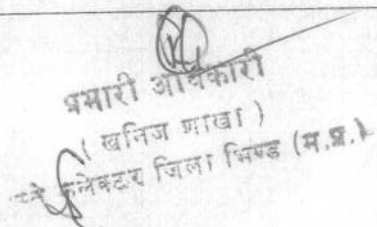 प्रभारी अधिकारी
( खनिज शाखा )
कलेक्टर जिला भिण्ड (म.प्र.)